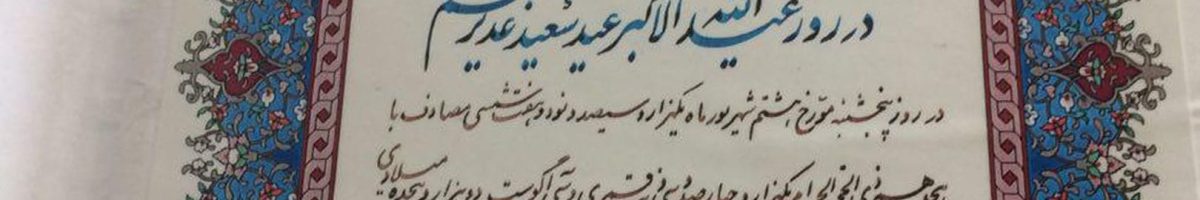 در روز عید الله الاکبر عید سعید غدیر خم
در روز پنجشنبه مورّخ هشتم شهریور ماه یکهزار و سیصد و نود و هفت شمسی مصادف با
هجدهم ذی الحجة الحرام یکهزار و چهارصد و سی و نه قمری و سی آگوست دو هزار و هجده میلادی